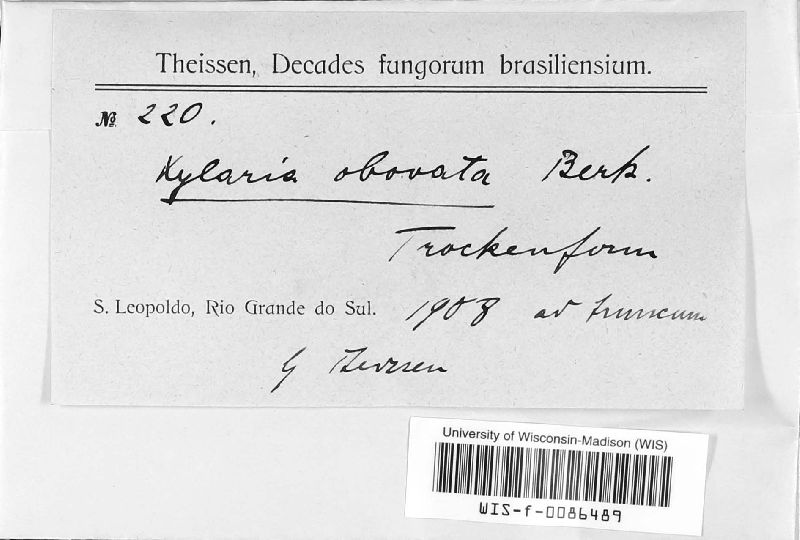 Theissen, Decades fungorum brasiliensium.
№ 220.
Xylaria obovata Berk.
Trockenform
S. Leopoldo, Rio Grande do Sul. 1908 ad truncum
University of Wisconsin-Madison (WIS)
WIS-f-0086489